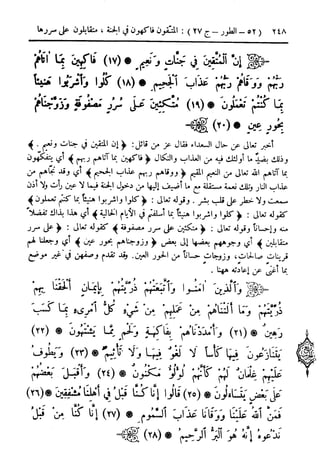 ٢٤٨ (٥٢ – الطور – ج ٢٧) : المتقون فاكهون في الجنة، متقابلون على سررها
إِنَّ الْمُتَّقِينَ فِي جَنَّاتٍ وَنَعِيمٍ * (١٧) فَاكِهِينَ بِمَا آتَاهُمْ
رَبُّهُمْ وَوَقَاهُمْ رَبُّهُمْ عَذَابَ الْجَحِيمِ * (١٨) كُلُوا وَاشْرَبُوا هَنِيئًا
بِمَا كُنْتُمْ تَعْمَلُونَ * (١٩) مُتَّكِئِينَ عَلَى سُرُرٍ مَصْفُوفَةٍ وَزَوَّجْنَاهُمْ
بِحُورٍ عِينٍ * (٢٠)
أخبر تعالى عن حال السعداء فقال عز من قائل: ﴿ إن المتقين في جنات ونعيم. ﴾
وذلك بضد ما أولئك فيه من العذاب والنكال ﴿ فاكهين بما آتاهم ربهم ﴾ أي يتفكهون
بما آتاهم الله تعالى من النعيم المقيم ﴿ ووقاهم ربهم عذاب الجحيم ﴾ أي وقد نجاهم من
عذاب النار وتلك نعمة مستقلة مع ما أضيف إليها من دخول الجنة فيما لا عين رأت ولا أذن
سمعت ولا خطر على قلب بشر. وقوله تعالى: ﴿ كلوا واشربوا هنيئاً بما كنتم تعملون ﴾
كقوله تعالى: ﴿ كلوا واشربوا هنيئاً بما أسلفتم في الأيام الخالية ﴾ أي هذا بذاك تفضلاً
منه وإحساناً وقوله تعالى: ﴿ متكئين على سرر مصفوفة ﴾ كقوله تعالى: ﴿ على سرر
متقابلين ﴾ أي وجوههم بعضها إلى بعض ﴿ وزوجناهم بحور عين ﴾ أي وجعلنا لهم
قرينات صالحات، وزوجات حساناً من الحور العين. وقد تقدم وصفهن في غير موضع
بما أغنى عن إعادته ههنا.
وَالَّذِينَ آمَنُوا وَاتَّبَعَتْهُمْ ذُرِّيَّتُهُمْ بِإِيمَانٍ أَلْحَقْنَا بِهِمْ
ذُرِّيَّتَهُمْ وَمَا أَلَتْنَاهُمْ مِنْ عَمَلِهِمْ مِنْ شَيْءٍ كُلُّ امْرِئٍ بِمَا كَسَبَ
رَهِينٌ * (٢١) وَأَمْدَدْنَاهُمْ بِفَاكِهَةٍ وَلَحْمٍ مِمَّا يَشْتَهُونَ * (٢٢)
يَتَنَازَعُونَ فِيهَا كَأْسًا لَا لَغْوٌ فِيهَا وَلَا تَأْثِيمٌ * (٢٣) وَيَطُوفُ
عَلَيْهِمْ غِلْمَانٌ لَهُمْ كَأَنَّهُمْ لُؤْلُؤٌ مَكْنُونٌ * (٢٤) وَأَقْبَلَ بَعْضُهُمْ
عَلَى بَعْضٍ يَتَسَاءَلُونَ * (٢٥) قَالُوا إِنَّا كُنَّا قَبْلُ فِي أَهْلِنَا مُشْفِقِينَ * (٢٦)
فَمَنَّ اللَّهُ عَلَيْنَا وَوَقَانَا عَذَابَ السَّمُومِ * (٢٧) إِنَّا كُنَّا مِنْ قَبْلُ
نَدْعُوهُ إِنَّهُ هُوَ الْبَرُّ الرَّحِيمُ * (٢٨)